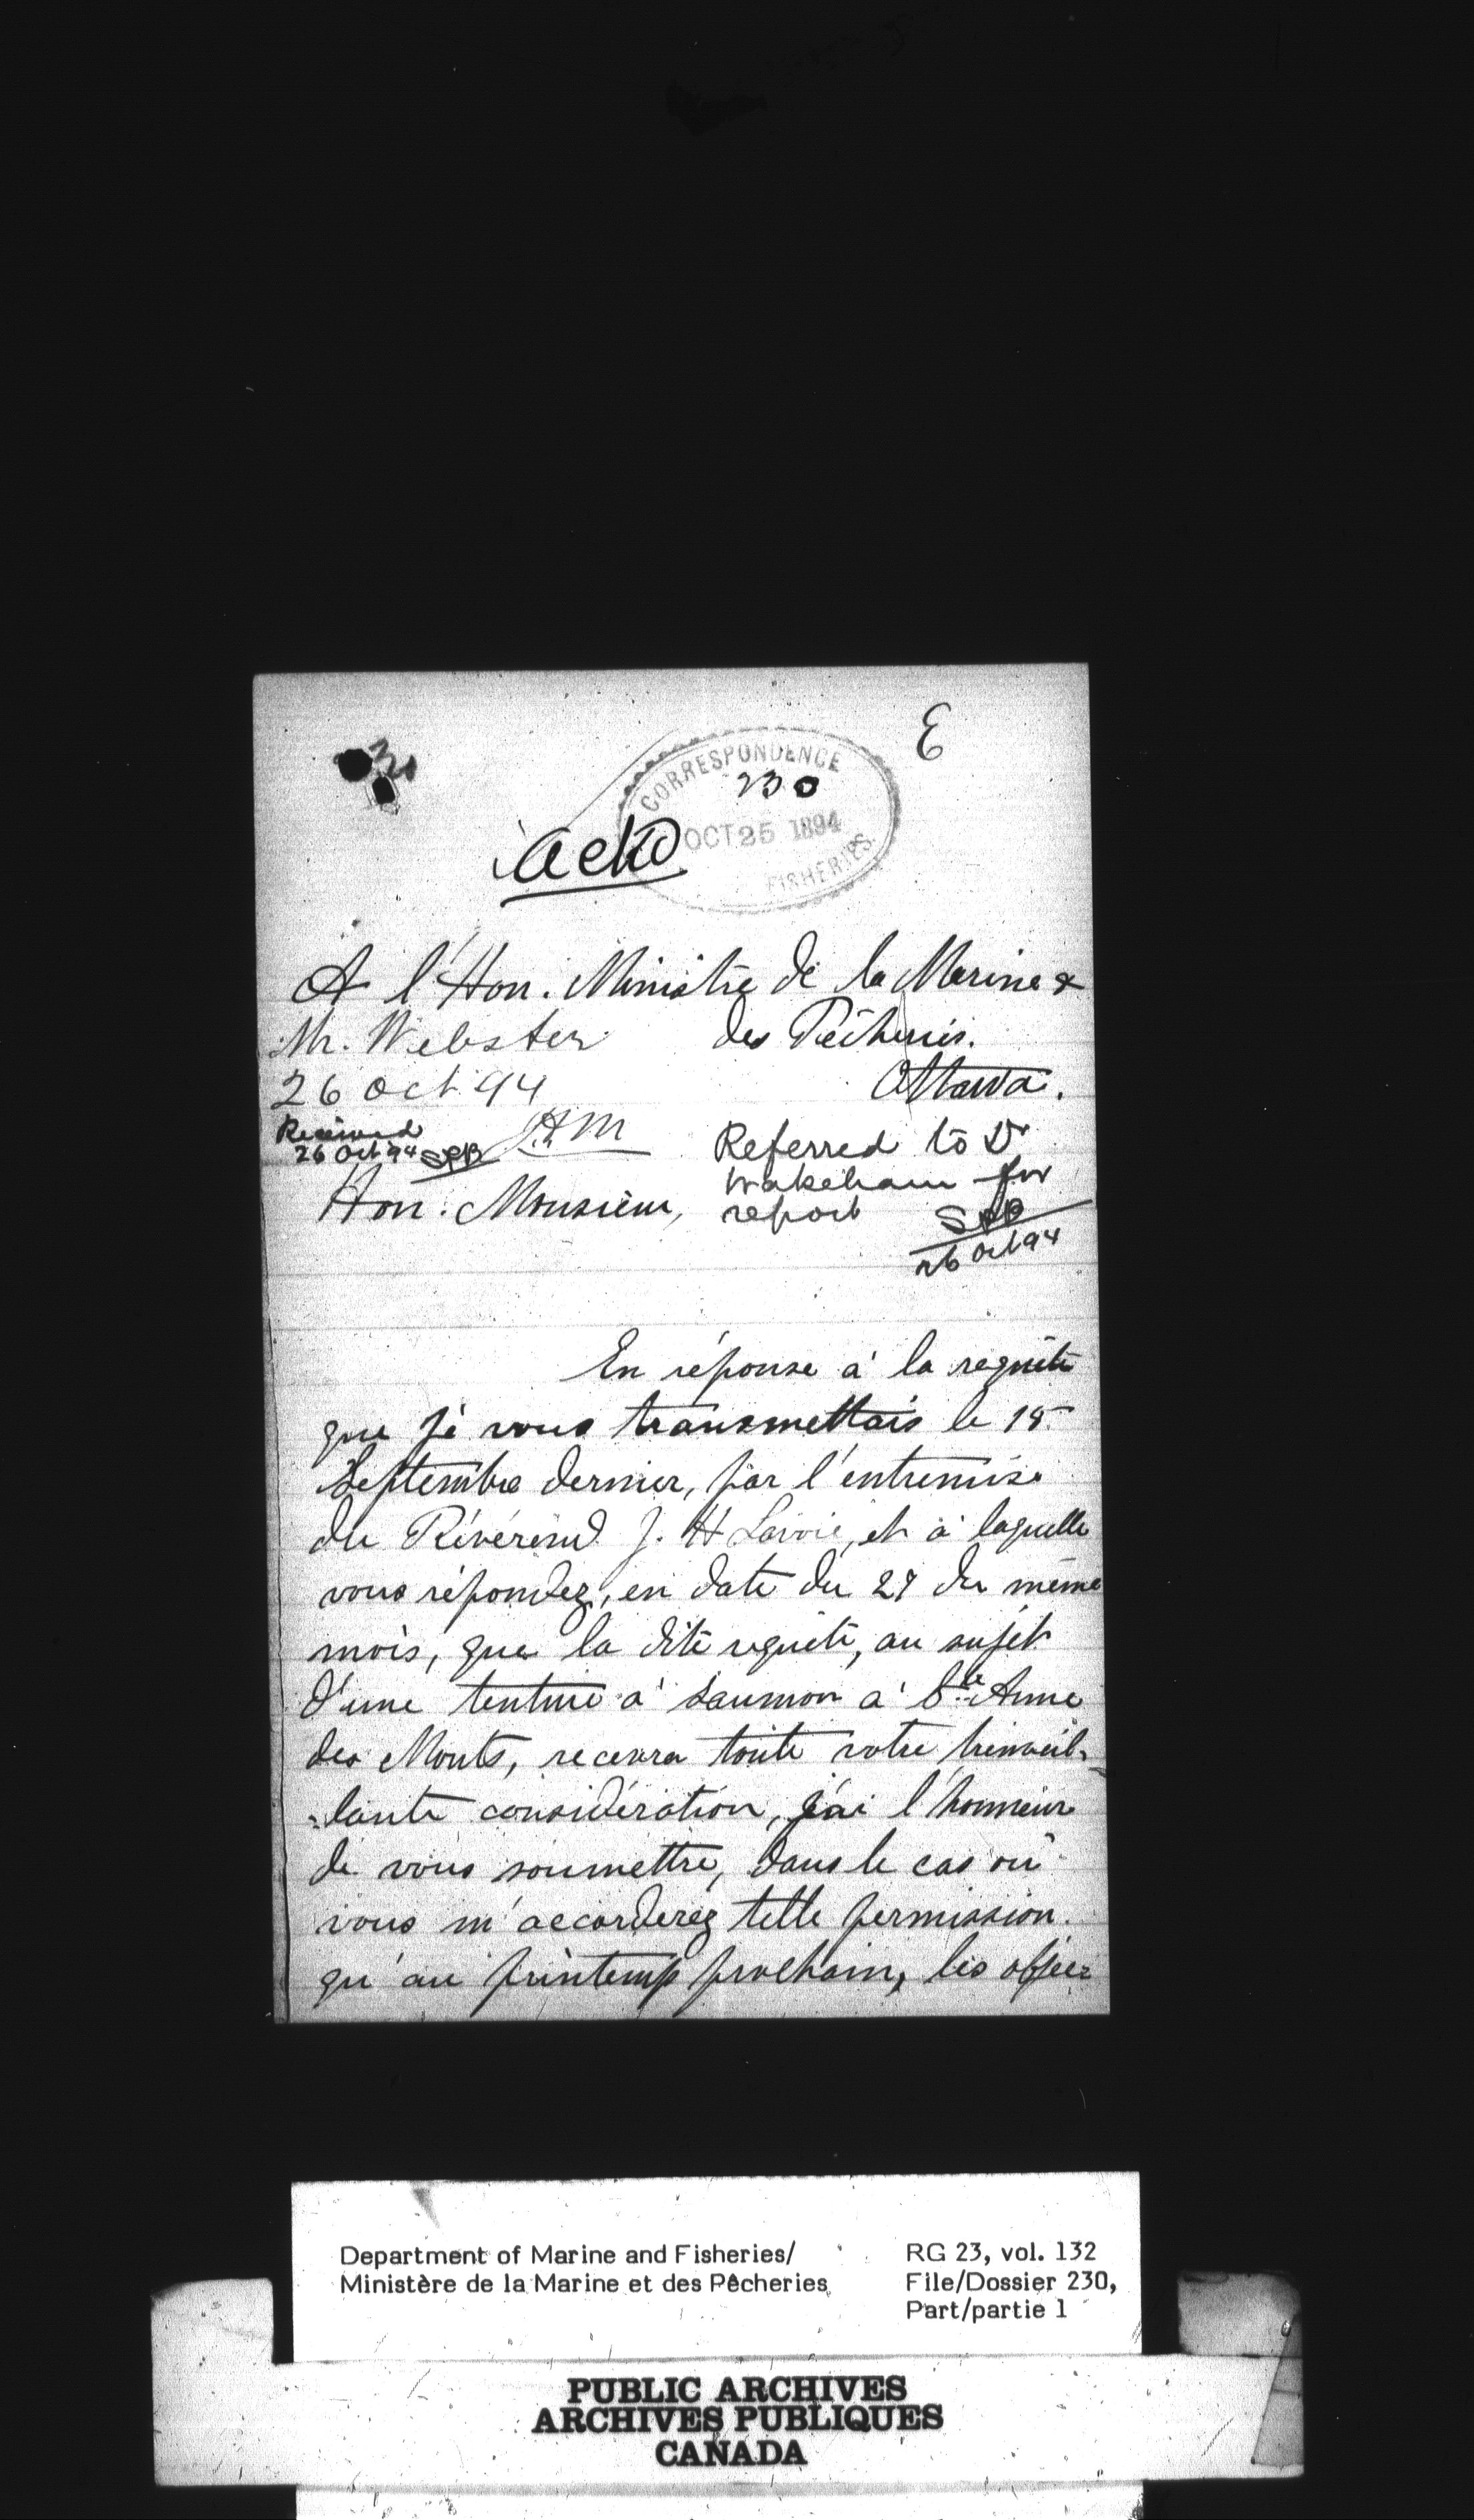 E
CORRESPONDENCE
230
OCT 25 1894
FISHERIES.
Ackd
A l'Hon. Ministre de la Marine &
des Pêcheries.
Ottawa.
Mr. Webster
26 Oct 94
Received
26 Oct 94 SPB
Referred to Dr
Wakeham for
report SPB
26 Oct 94
Hon. Monsieur,
En réponse à la requête
que je vous transmettais le 18
Septembre dernier, par l'entremise
du Révérend J. H Lavoie, et à laquelle
vous répondez, en date du 27 du même
mois, que la dite requête, au sujet
d'une tenture à saumon à Ste Anne
des Monts, recevra toute votre bienveil-
=lante considération, j'ai l'honneur
de vous soumettre, dans le cas où
vous m'accorderez telle permission.
qu'au printemps prochain, les offici=
Department of Marine and Fisheries/
Ministère de la Marine et des Pêcheries
RG 23, vol. 132
File/Dossier 230,
Part/partie 1
PUBLIC ARCHIVES
ARCHIVES PUBLIQUES
CANADA